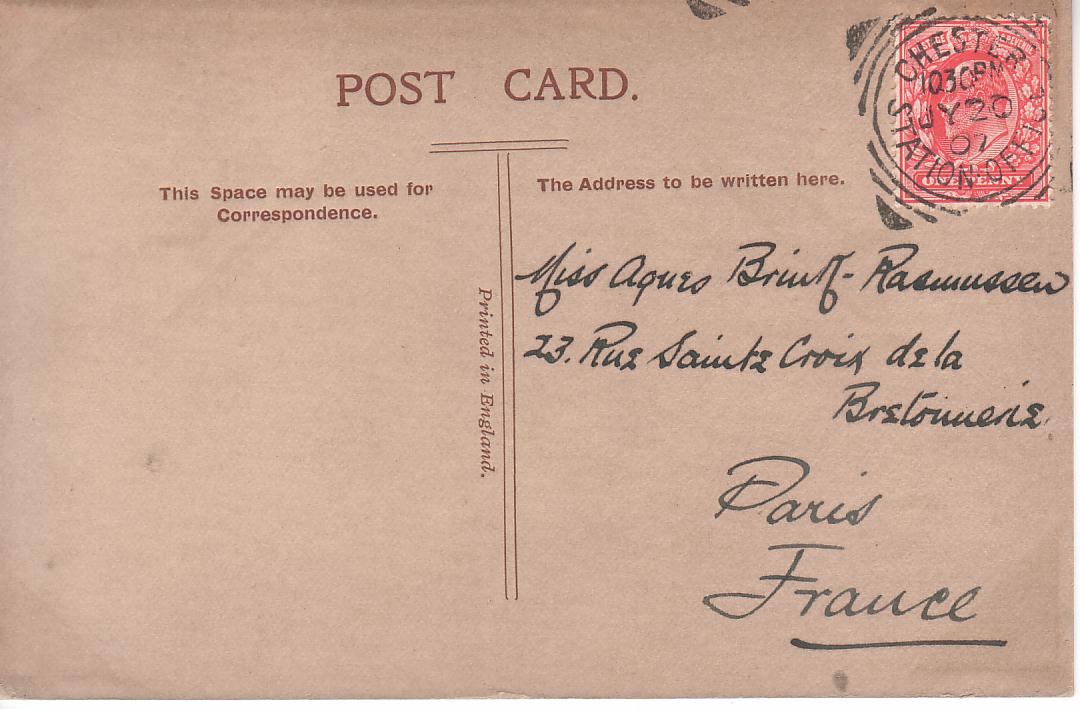 POST CARD.
This Space may be used for
Correspondence.
The Address to be written here.
Printed in England.
CHESTER
STATION OFFICE
1030PM
20
07
ONE PENNY
Miss Agnes Brink-Rasmussen
23. Rue Sainte Croix de la
Bretonnerie
Paris
France